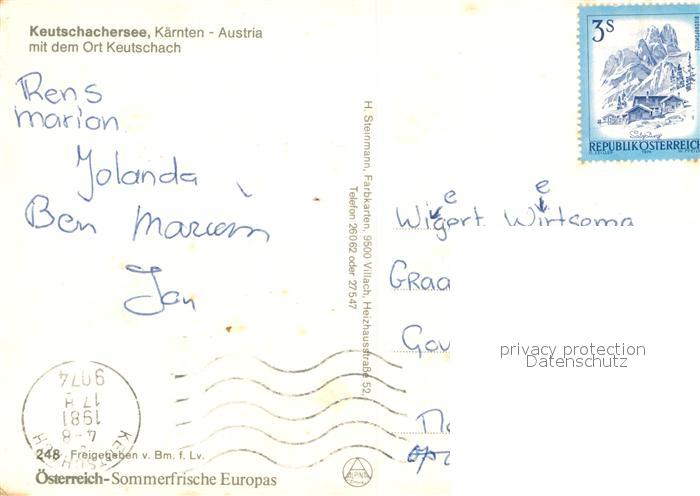 Keutschachersee, Kärnten - Austria
mit dem Ort Keutschach
Rens
marion
Yolanda
Ben
Jan
H. Steinmann, Farbkarten, 9500 Villach, Heizhausstraße 52
Telefon 26062 oder 27547
3 S
REPUBLIK ÖSTERREICH
e e
Wigert Wirtsema
Graa
Gou
privacy protection
Datenschutz
9074
17 H
1981
4-8
248 Freigegeben v. Bm. f. Lv.
Österreich-Sommerfrische Europas